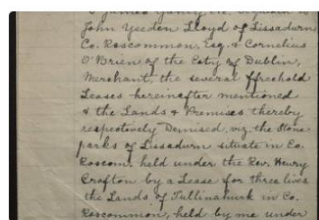 John Yeedon Lloyd of Lissadurn
Co. Roscommon, Esq. & Cornelius
O'Brien of the City of Dublin,
Merchant, the several ffreehold
Leases hereinafter mentioned
& the Lands & Premises thereby
respectively Demised, viz. the Stone
parks of Lissadurn situate in Co.
Roscom. held under the Rev. Henry
Crofton by a Lease for three lives
the Lands of Tullinahurk in Co.
Roscommon, held by me under